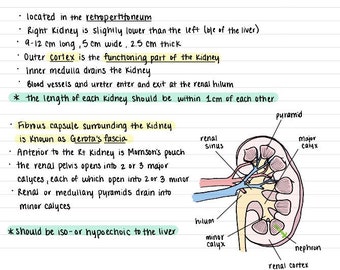 · located in the retroperitoneum
· Right kidney is slightly lower than the left (b/c of the liver)
· 9-12 cm long, 5 cm wide, 2.5 cm thick
· Outer cortex is the functioning part of the kidney
· Inner medulla drains the kidney
· Blood vessels and ureter enter and exit at the renal hilum
* the length of each kidney should be within 1cm of each other
· Fibrius capsule surrounding the kidney
is known as Gerota's fascia
· Anterior to the Rt kidney is Morrison's pouch
· the renal pelvis opens into 2 or 3 major
calyces, each of which open into 2 or 3 minor
· Renal or medullary pyramids drain into
minor calyces
* should be iso- or hypoechoic to the liver
pyramid
renal
sinus
major
calyx
hilum
minor
calyx
nephron
renal cortex